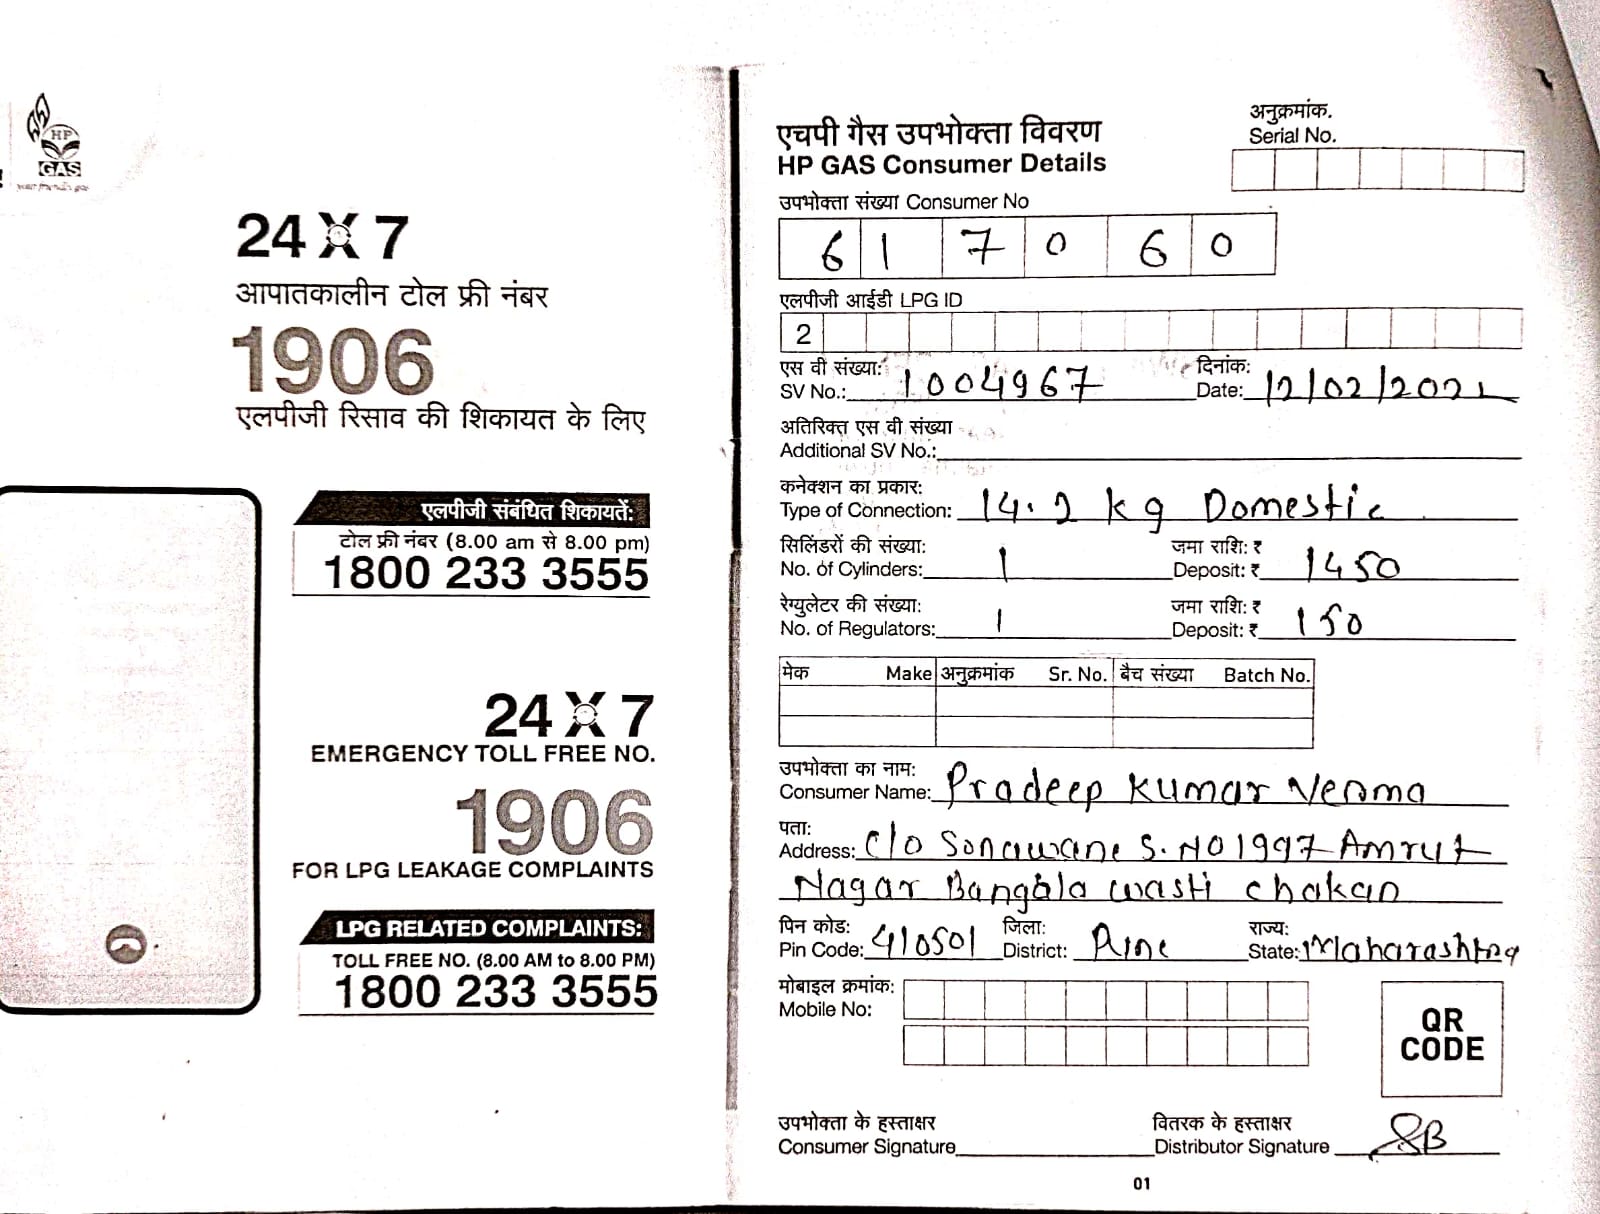 HP
GAS
your friendly gas
24 X 7
आपातकालीन टोल फ्री नंबर
1906
एलपीजी रिसाव की शिकायत के लिए
एलपीजी संबंधित शिकायतें:
टोल फ्री नंबर (8.00 am से 8.00 pm)
1800 233 3555
24 X 7
EMERGENCY TOLL FREE NO.
1906
FOR LPG LEAKAGE COMPLAINTS
LPG RELATED COMPLAINTS:
TOLL FREE NO. (8.00 AM to 8.00 PM)
1800 233 3555
एचपी गैस उपभोक्ता विवरण
HP GAS Consumer Details
अनुक्रमांक.
Serial No.
उपभोक्ता संख्या Consumer No
617060
एलपीजी आईडी LPG ID
2
एस वी संख्या: दिनांक:
SV No.: 1004967 Date: 12/02/2021
अतिरिक्त एस वी संख्या
Additional SV No.:
कनेक्शन का प्रकार:
Type of Connection: 14.2 kg Domestic
सिलिंडरों की संख्या: जमा राशि: ₹
No. of Cylinders: 1 Deposit: ₹ 1450
रेग्युलेटर की संख्या: जमा राशि: ₹
No. of Regulators: 1 Deposit: ₹ 150
मेक Make अनुक्रमांक Sr. No. बैच संख्या Batch No.
उपभोक्ता का नाम:
Consumer Name: Pradeep Kumar Verma
पता:
Address: C/O Sonawane S. NO 1997 Amrut
Nagar Bangala wasti chakan
पिन कोड: जिला: राज्य:
Pin Code: 410501 District: Pune State: Maharashtra
मोबाइल क्रमांक:
Mobile No:
QR
CODE
उपभोक्ता के हस्ताक्षर वितरक के हस्ताक्षर
Consumer Signature Distributor Signature SB
01